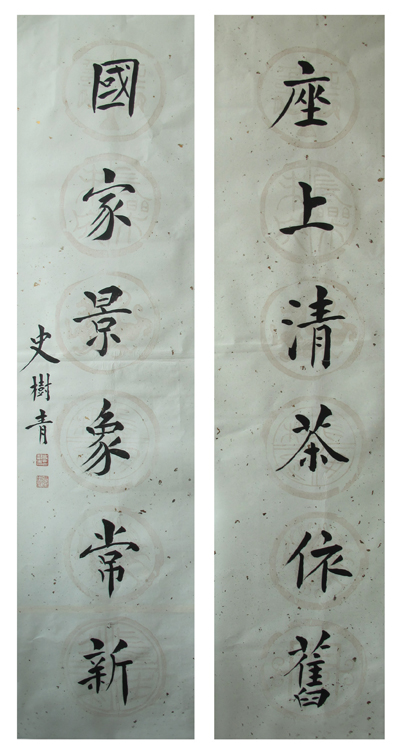 座上清茶依舊
國家景象常新
史樹青